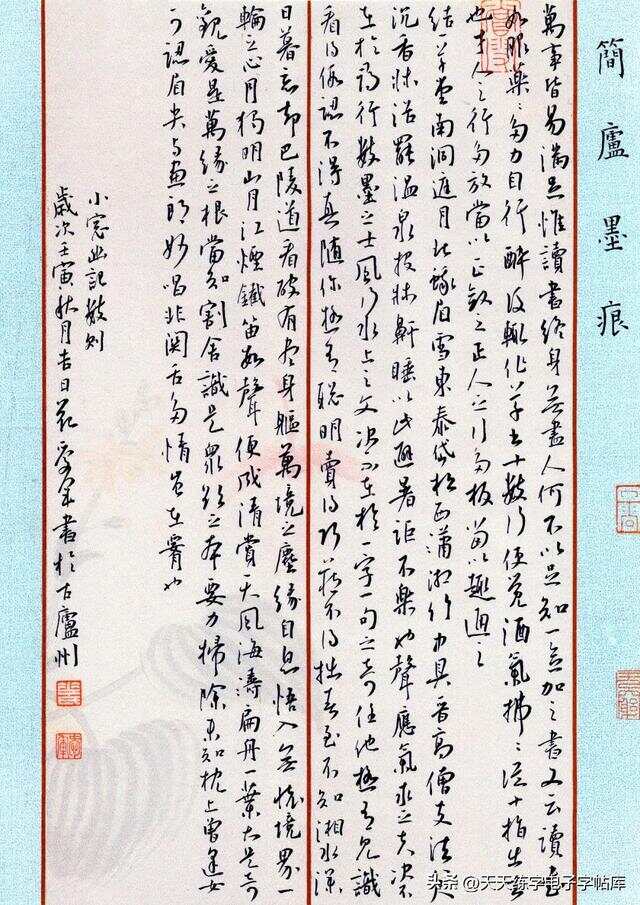 簡廬墨痕
萬事皆易滿足惟讀書終身無盡人何不以足知一念加之書又云讀書
如服藥藥多力自行醉後輒作草書十數行便覺酒氣拂拂從十指出去
也才人之行多放當以正斂之正人之行多板當以趣通之
結一草堂南洞庭月北蛾眉雪東泰岱松西瀟湘竹中具晉高僧支法
沉香牀浴罷溫泉投牀鼾睡以此避暑詎不樂也聲應氣求之夫決不
在於尋行數墨之士風行水上之文決不在於一字一句之奇任他極有見識
看得假認不得真隨你極有聰明賣得巧藏不得拙春至不知湘水深
日暮忘卻巴陵道看破有盡身軀萬境之塵緣自息悟入無懷境界一
輪之心月獨明山月江煙鐵笛數聲便成清賞天風海濤扁舟一葉大是奇
觀愛是萬緣之根當知割舍識是眾欲之本要力掃除未知枕上曾逢女
可認眉尖與畫郎妙唱非關舌多情豈在腰也
小窓幽記數則
歲次壬寅秋月吉日書於古廬州
头条 @天天练字电子字帖库